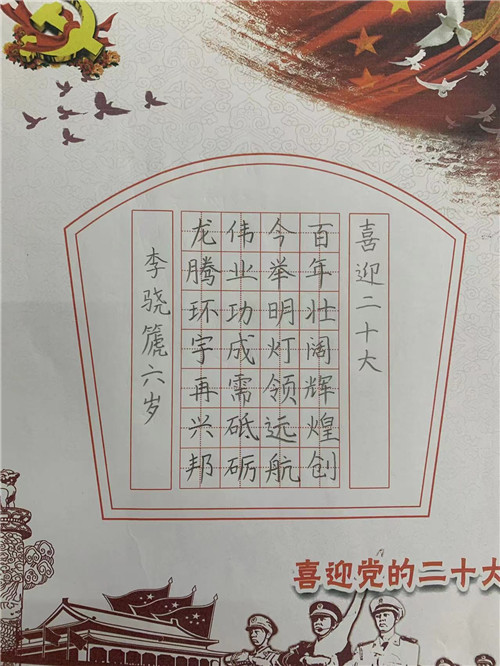 喜迎二十大
百年壮阔辉煌创
今举明灯领远航
伟业功成需砥砺
龙腾环宇再兴邦
李骁篪六岁
喜迎党的二十大